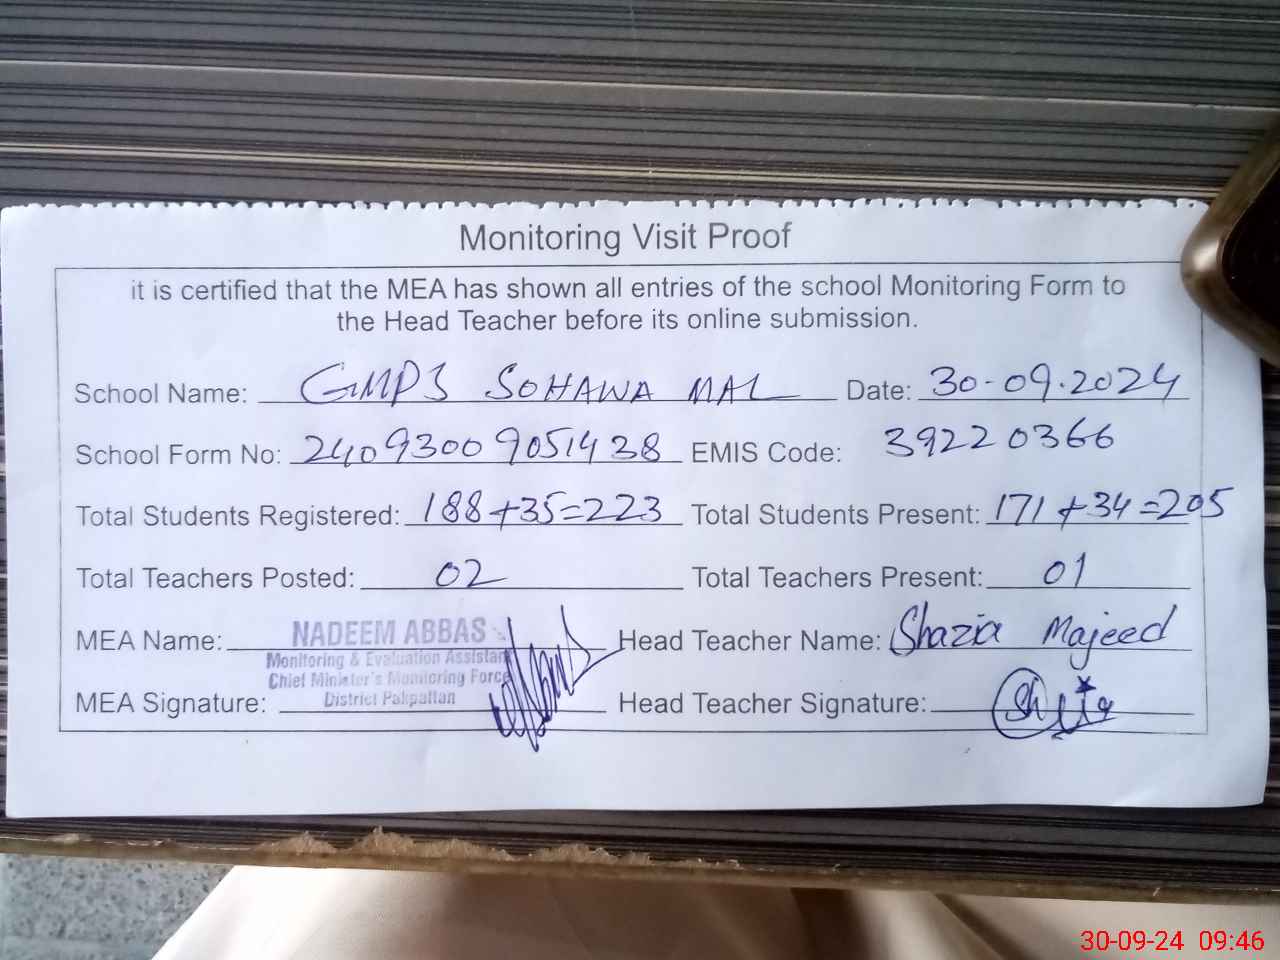 Monitoring Visit Proof
it is certified that the MEA has shown all entries of the school Monitoring Form to
the Head Teacher before its online submission.
School Name: GMPS SOHAWA MAL Date: 30-09-2024
School Form No: 24093009051438 EMIS Code: 39220366
Total Students Registered: 188+35=223 Total Students Present: 171+34=205
Total Teachers Posted: 02 Total Teachers Present: 01
MEA Name: NADEEM ABBAS Head Teacher Name: Shazia Majeed
Monitoring & Evaluation Assistant
Chief Minister's Monitoring Force
District Pakpattan
MEA Signature: Head Teacher Signature:
30-09-24 09:46